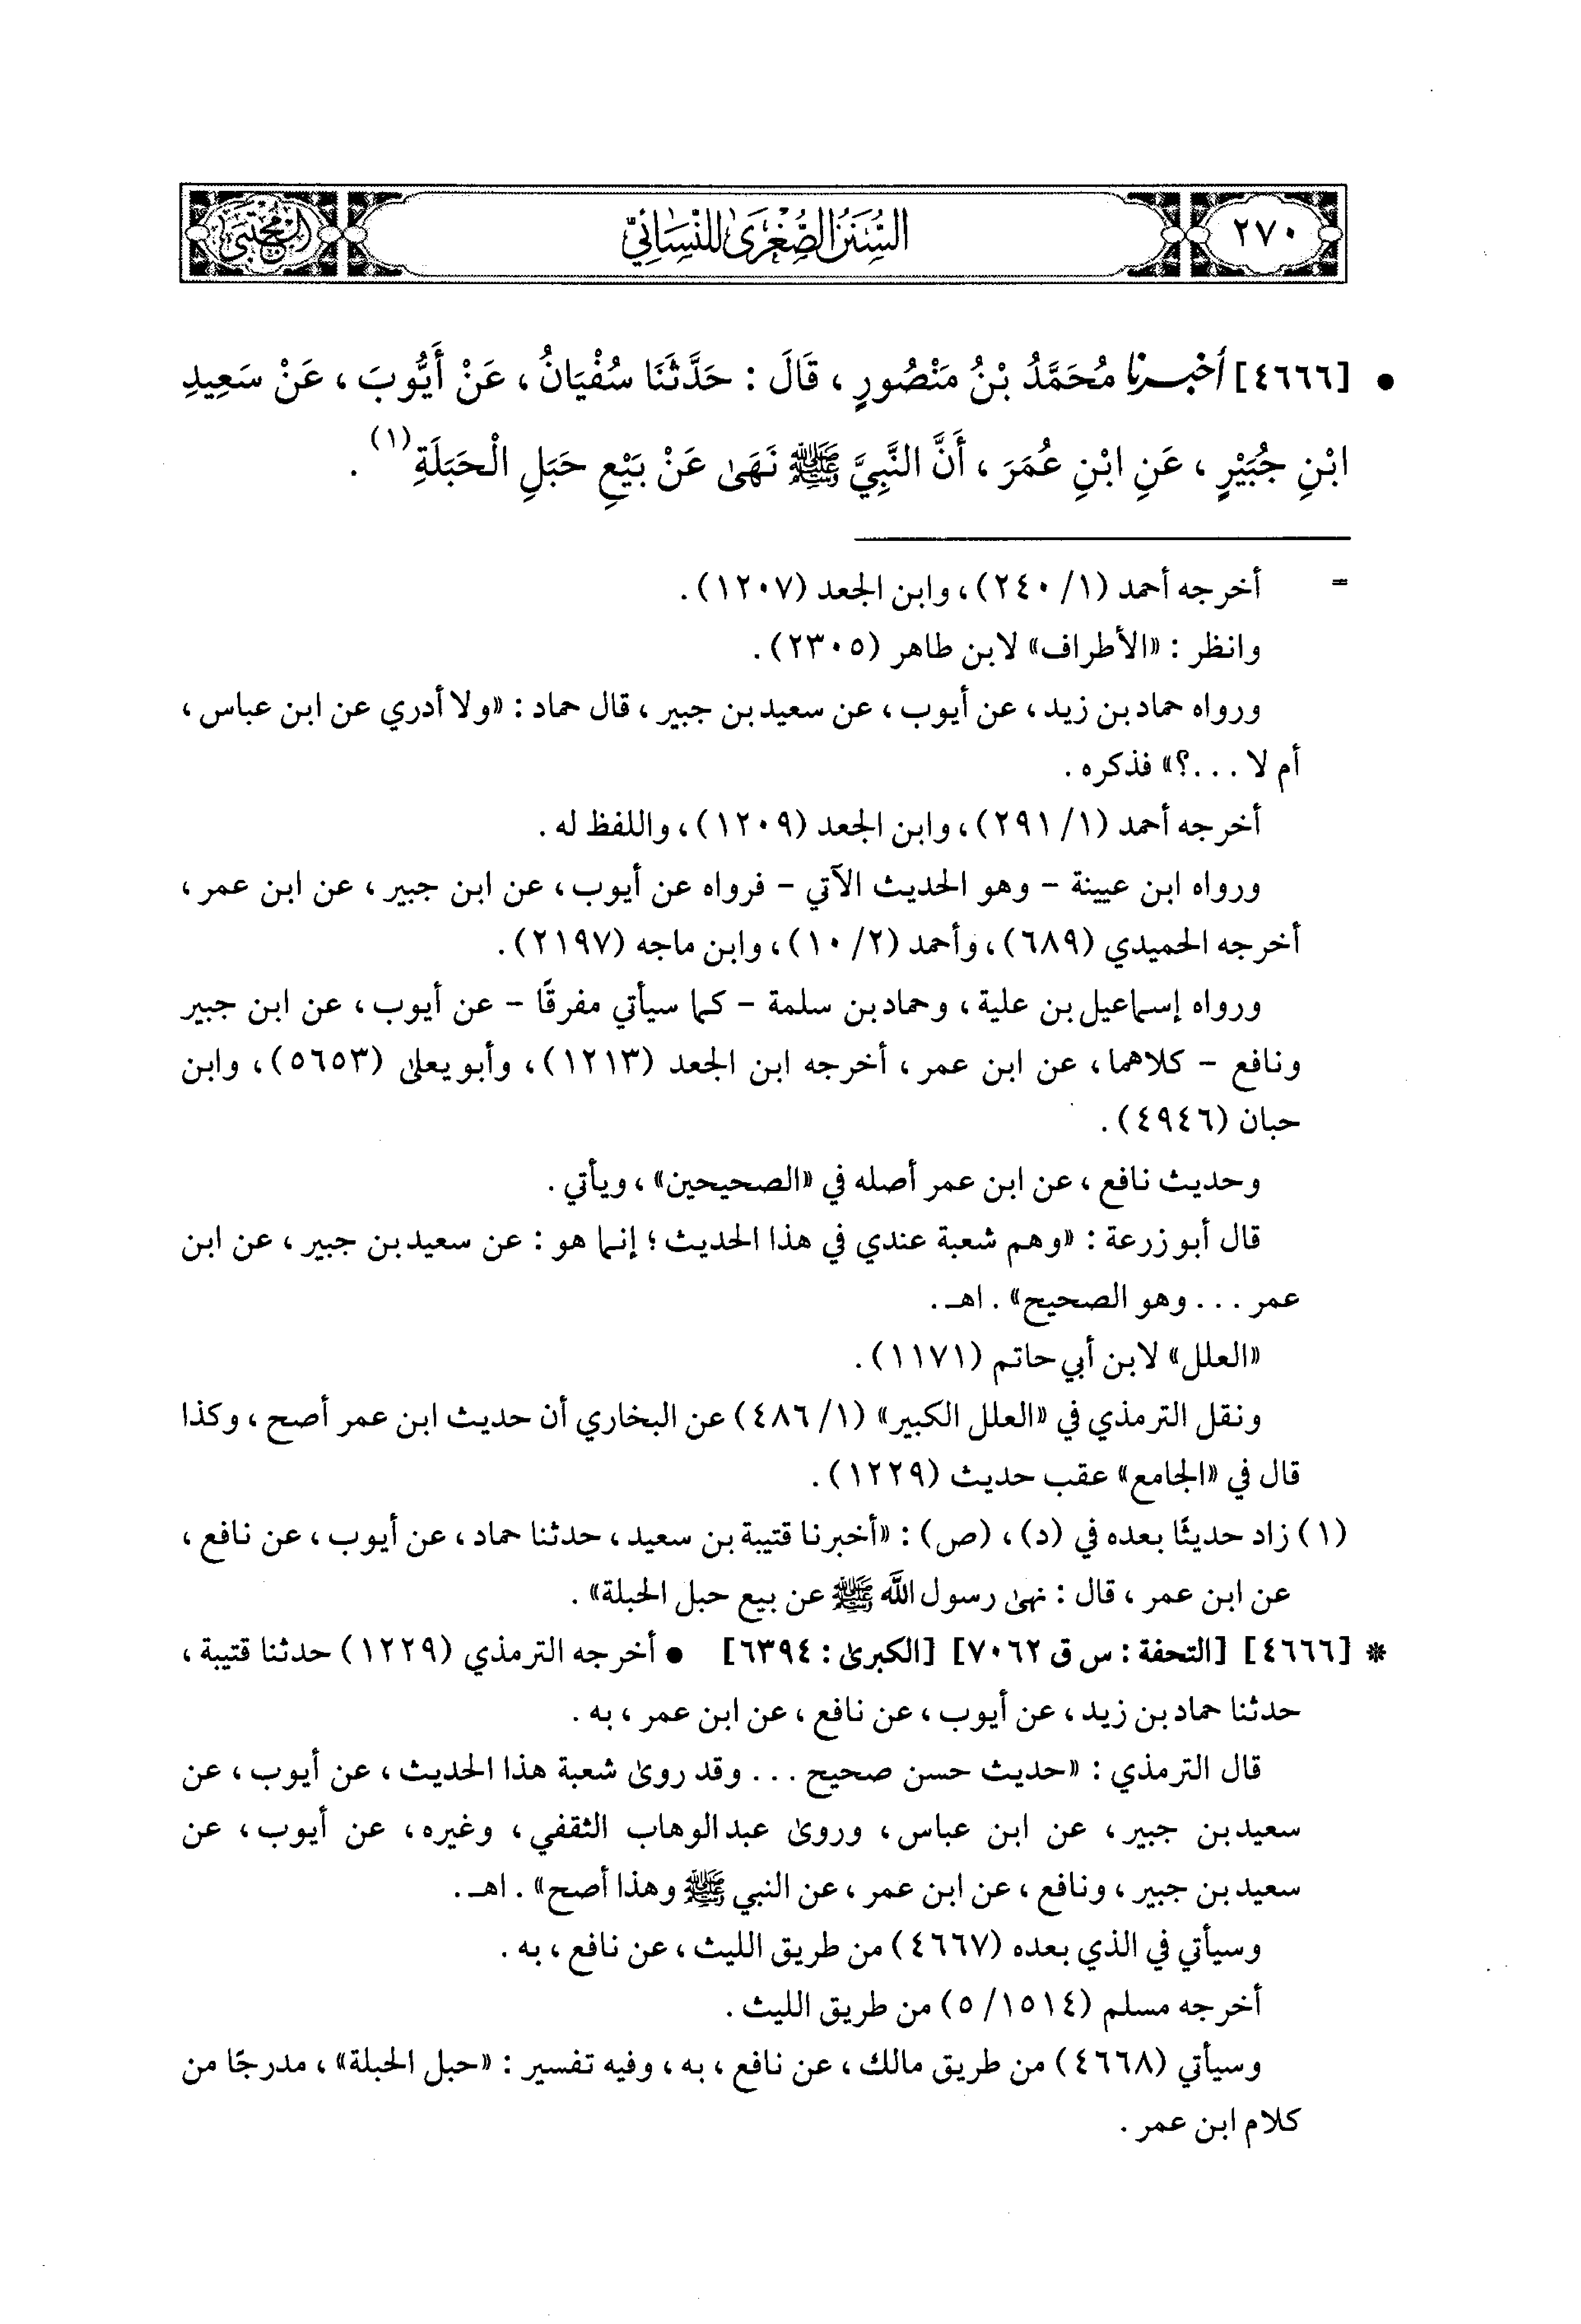 ٢٧٠
السُّنَنُ الصُّغْرَىٰ لِلنَّسَائِيِّ
المجتبى
• [٤٦٦٦] أَخْبَرَنَا مُحَمَّدُ بْنُ مَنْصُورٍ، قَالَ: حَدَّثَنَا سُفْيَانُ، عَنْ أَيُّوبَ، عَنْ سَعِيدِ
ابْنِ جُبَيْرٍ، عَنِ ابْنِ عُمَرَ، أَنَّ النَّبِيَّ ﷺ نَهَىٰ عَنْ بَيْعِ حَبَلِ الْحَبَلَةِ(١).
= أخرجه أحمد (١/ ٢٤٠)، وابن الجعد (١٢٠٧).
وانظر: «الأطراف» لابن طاهر (٢٣٠٥).
ورواه حماد بن زيد، عن أيوب، عن سعيد بن جبير، قال حماد: «ولا أدري عن ابن عباس،
أم لا ...؟» فذكره.
أخرجه أحمد (١/ ٢٩١)، وابن الجعد (١٢٠٩)، واللفظ له.
ورواه ابن عيينة - وهو الحديث الآتي - فرواه عن أيوب، عن ابن جبير، عن ابن عمر،
أخرجه الحميدي (٦٨٩)، وأحمد (٢/ ١٠)، وابن ماجه (٢١٩٧).
ورواه إسماعيل بن علية، وحماد بن سلمة - كما سيأتي مفرقًا - عن أيوب، عن ابن جبير
ونافع - كلاهما، عن ابن عمر، أخرجه ابن الجعد (١٢١٣)، وأبو يعلىٰ (٥٦٥٣)، وابن
حبان (٤٩٤٦).
وحديث نافع، عن ابن عمر أصله في «الصحيحين»، ويأتي.
قال أبو زرعة: «وهم شعبة عندي في هذا الحديث؛ إنما هو: عن سعيد بن جبير، عن ابن
عمر ... وهو الصحيح». اهـ.
«العلل» لابن أبي حاتم (١١٧١).
ونقل الترمذي في «العلل الكبير» (١/ ٤٨٦) عن البخاري أن حديث ابن عمر أصح، وكذا
قال في «الجامع» عقب حديث (١٢٢٩).
(١) زاد حديثًا بعده في (د)، (ص): «أخبرنا قتيبة بن سعيد، حدثنا حماد، عن أيوب، عن نافع،
عن ابن عمر، قال: نهىٰ رسول اللَّه ﷺ عن بيع حبل الحبلة».
* [٤٦٦٦] [التحفة: س ق ٧٠٦٢] [الكبرىٰ: ٦٣٩٤] • أخرجه الترمذي (١٢٢٩) حدثنا قتيبة،
حدثنا حماد بن زيد، عن أيوب، عن نافع، عن ابن عمر، به.
قال الترمذي: «حديث حسن صحيح ... وقد روىٰ شعبة هذا الحديث، عن أيوب، عن
سعيد بن جبير، عن ابن عباس، وروىٰ عبد الوهاب الثقفي، وغيره، عن أيوب، عن
سعيد بن جبير، ونافع، عن ابن عمر، عن النبي ﷺ وهذا أصح». اهـ.
وسيأتي في الذي بعده (٤٦٦٧) من طريق الليث، عن نافع، به.
أخرجه مسلم (١٥١٤/ ٥) من طريق الليث.
وسيأتي (٤٦٦٨) من طريق مالك، عن نافع، به، وفيه تفسير: «حبل الحبلة»، مدرجًا من
كلام ابن عمر.